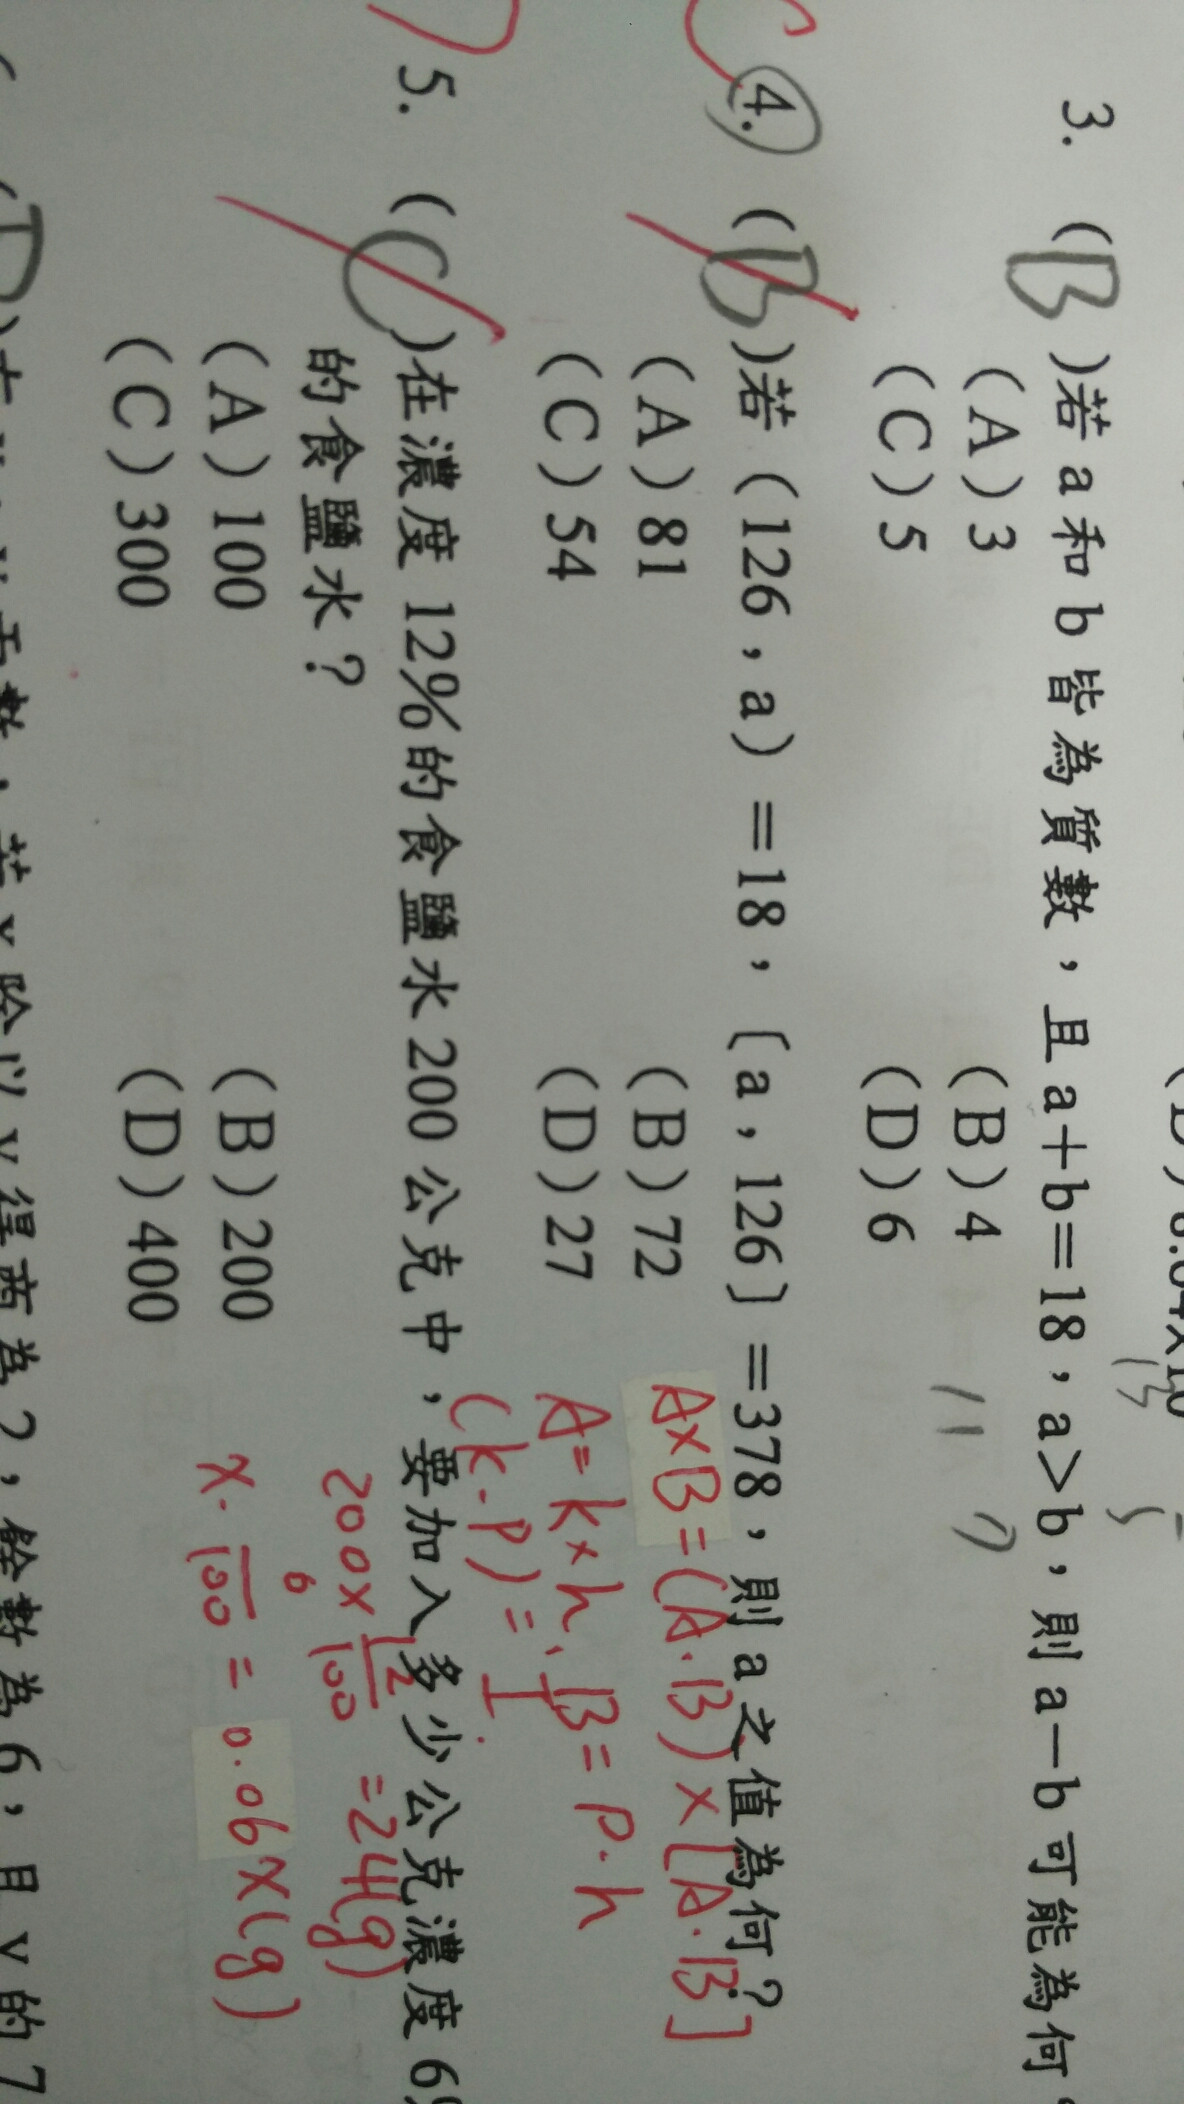 3. (B)若a和b皆為質數，且a＋b＝18，a＞b，則a－b可能為何
(A)3 (B)4
(C)5 (D)6
11 7
4. (B)若(126，a)＝18，〔a，126〕＝378，則a之值為何？
(A)81 (B)72
(C)54 (D)27
A×B=(A.B)×[A.B]
A=k×h, B=p.h
(k.p)=1.
5. (C)在濃度12%的食鹽水200公克中，要加入多少公克濃度6%
的食鹽水？
(A)100 (B)200
(C)300 (D)400
200×12/100=24(g)
x.6/100=0.06x(g)